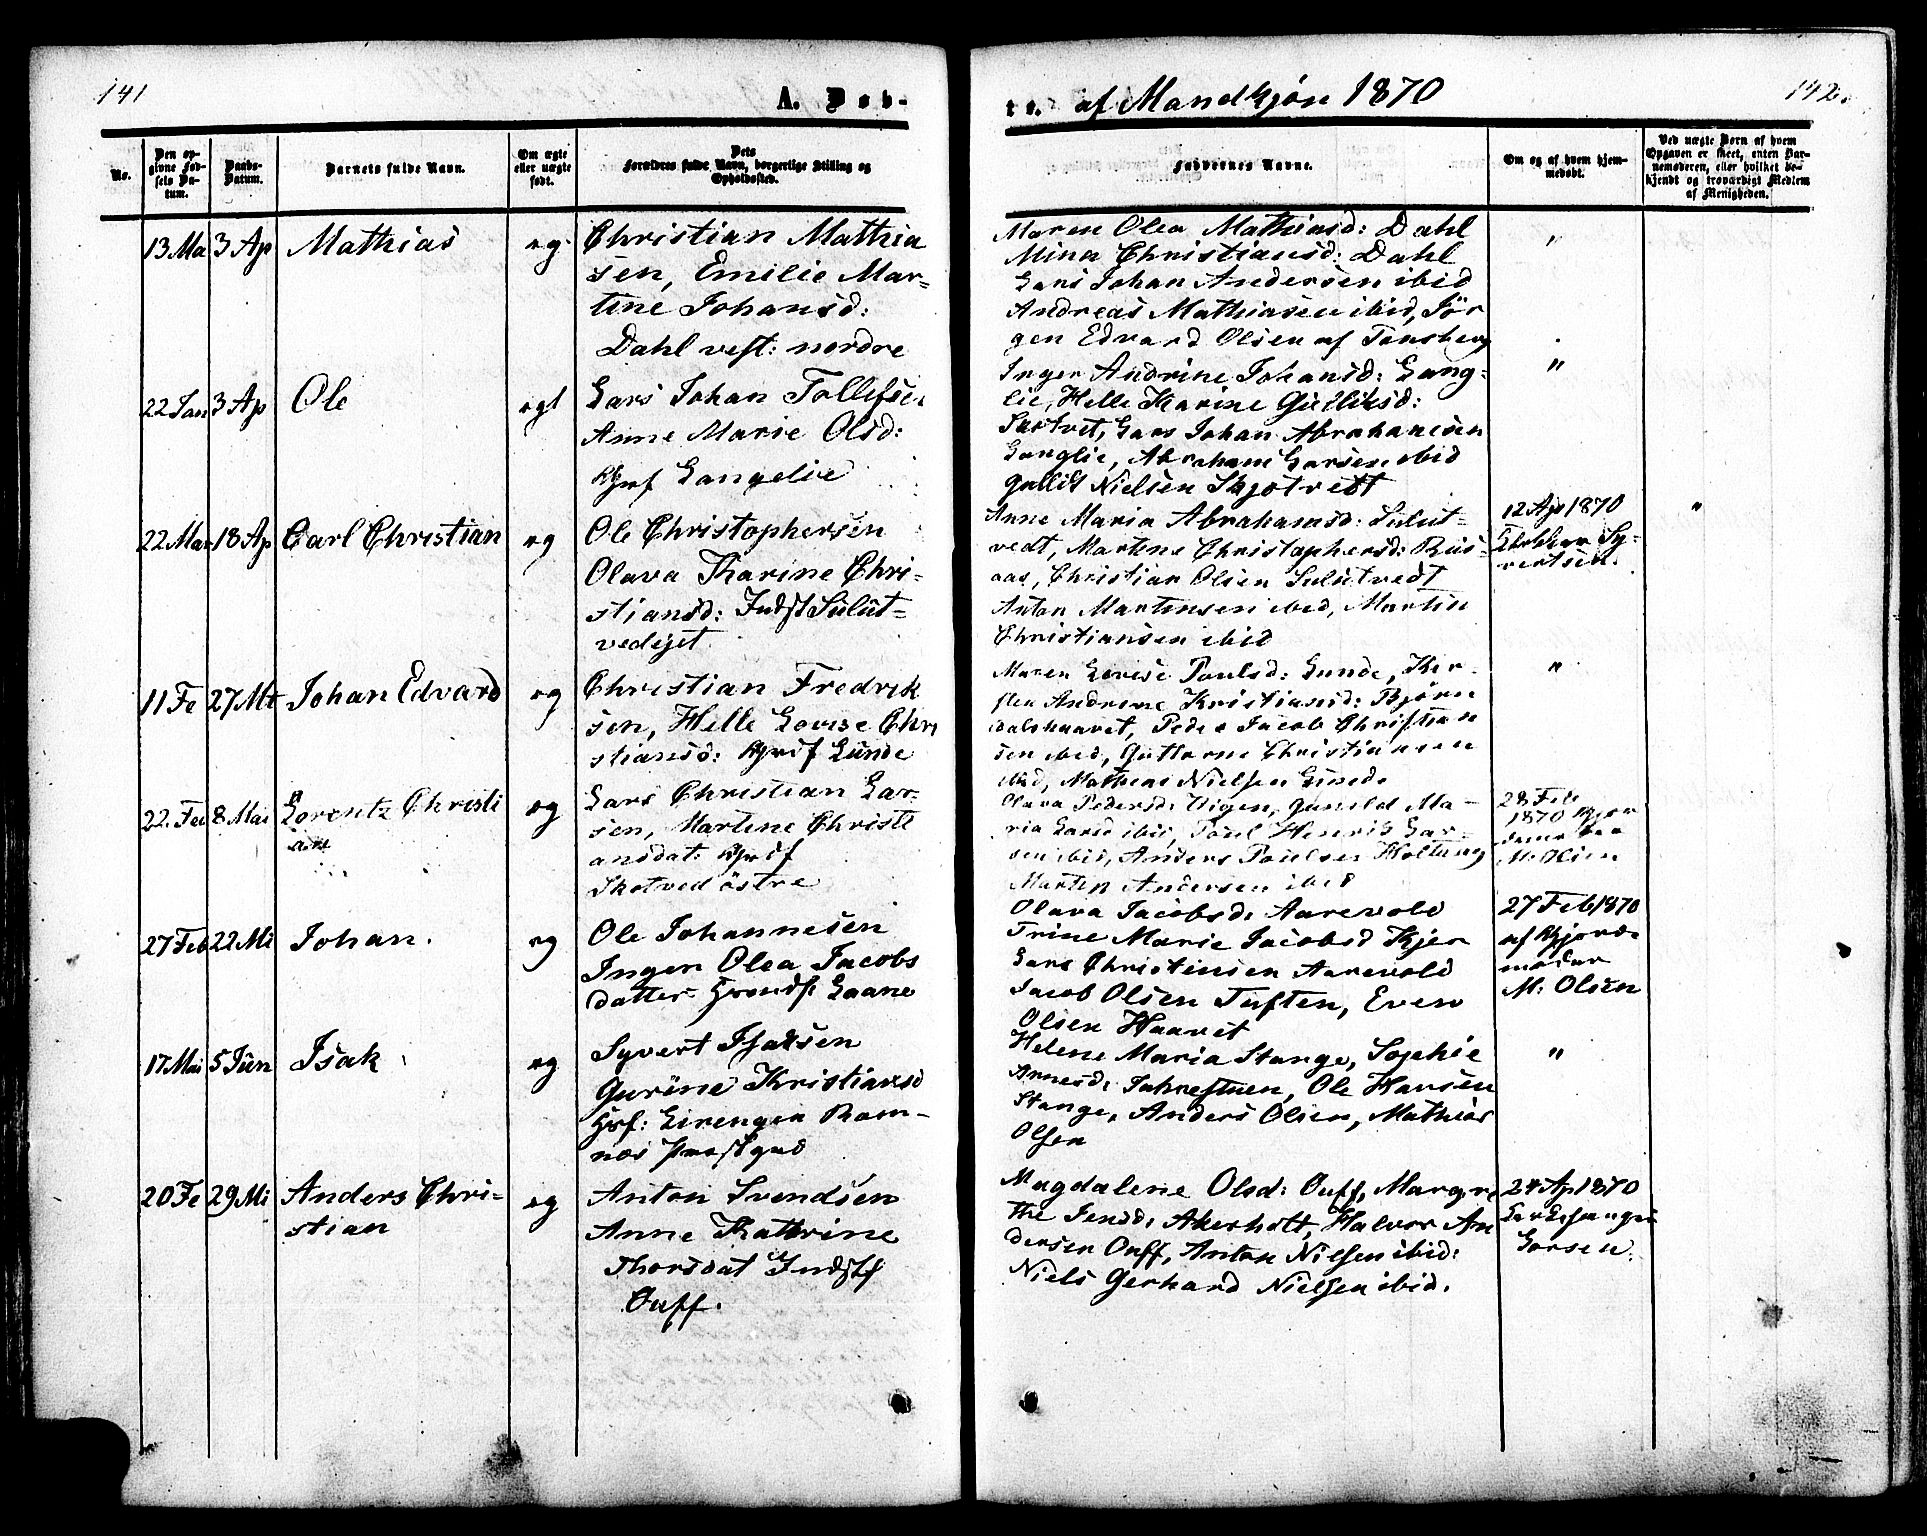 141
A. Døb-
te. af Mandkjøn 1870
142.
No.
Den op-
givne Fød-
sels Da-
tum.
Daabs-
Datum.
Barnets fulde Navn.
Om ægte
eller uægte
født.
Dets
Forældres fulde Navn, borgerlige Stilling og
Opholdssted.
Faddernes Navne.
Om og af hvem hjem-
medøbt.
Ved uægte Børn af hvem
Opgaven er skeet, enten Bar-
nemoderen, eller hvilket be-
kjendt og troværdigt Medlem
af Menigheden.
13 Ma 3 Ap Mathias eg.
Christian Mathia
sen, Emilie Mar-
tine Johansd:
Dahl vest: nordre
Maren Olea Mathiasd: Dahl
Mina Christiansd: Dahl
Lars Johan Andersen ibid
Andreas Mathiasen ibid, Jör
gen Edvard Olsen af Tönsberg
"
22 Jan 3 Ap Ole egt
Lars Johan Tollefse
Anne Marie Olsd:
Langelie
Inger Andrine Johansd: Lang-
lie, Helle Karine Gulliksd:
Lars Johan Abrahamsen
Langlie, Abraham Larsen ibid
Nielsen
"
22 Mar 18 Ap Carl Christian eg
Ole Christophersen
Olava Karine Chri-
stiansd: Indst Sulut-
vedejet
Anne Maria Abrahamsd: Sulut-
vedt, Martine Christophersd: Rus-
aas, Christian Olsen Sulutvedt
Anton Martinsen ibid, Martin
Christiansen ibid
12 Ap 1870
Sy-
vertsen.
"
11 Fe 27 Mr Johan Edvard eg
Christian Fredrik
sen, Helle Lovise Chri
stiansd: Lunde
Maren Lovise Poulsd: Lunde, Kir-
sten Andrine Kristiansd: Björn
dalshaavet, Peder Jacob Christian
sen ibid, Guttorm Christiansen
ibid, Mathias Nielsen Lunde
"
22 Feb 8 Mai Lorentz Christi
an
eg
Lars Christian Lar-
sen, Martine Christi
ansdat:
Skotved östre
Olava Pedersd: Vigen, Gunild Ma-
ria Larsd ibid, Poul Henrik Lar-
sen ibid, Anders Poulsen Holtung
Martin Andersen ibid
28 Feb
1870 Gjor
demoder
M. Olsen
27 Feb 22 Mi Johan. eg
Ole Johannesen
Inger Olea Jacobs
datter Laane
Olava Jacobsd: Aarevold
Trine Marie Jacobsd Kjer
Lars Christensen Aarevold
Jacob Olsen Tuften, Even
Olsen Haavet
27 Feb 1870
af Gjord-
moder
M: Olsen
17 Mai 5 Jun Isak eg
Syvert Isaksen
Gurine Kristiansd
Hsf: Eirengen Ram-
næs Prestgad
Helene Maria Stange, Sophie
Arnesd: Jahrestuen, Ole Hansen
Stange, Anders Olsen, Mathias
Olsen
"
20 Fe 29 Mi Anders Chri-
stian
eg
Anton Svendsen
Anne Kathrine
Thorsdat Indstf
Ouff.
Magdalene Olsd: Ouff, Margre
the Jensd: Akerholt, Halvor An
dersen Ouff, Anton Nielsen ibid:
Niels Gerhard Nielsen ibid.
24 Ap 1870
Kirkesanger
Larsen.